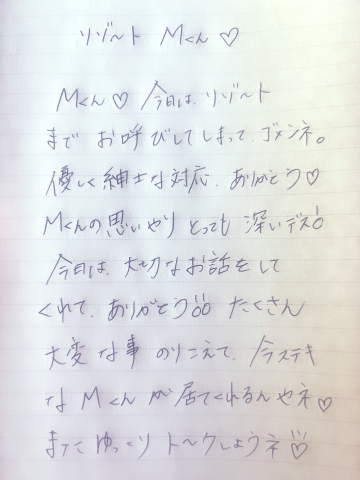 リゾート Mくん♡
Mくん♡ 今日は、リゾート
まで お呼びしてしまって、ゴメンネ。
優しく紳士な対応、ありがとう♡
Mくんの思いやり とっても 深いデス!
今日は、大切なお話をして
くれて、ありがとう!! たくさん
大変な事 のりこえて、今ステキ
な Mくん が 居てくれるんやネ♡
またゆっくり トークしようネ♡